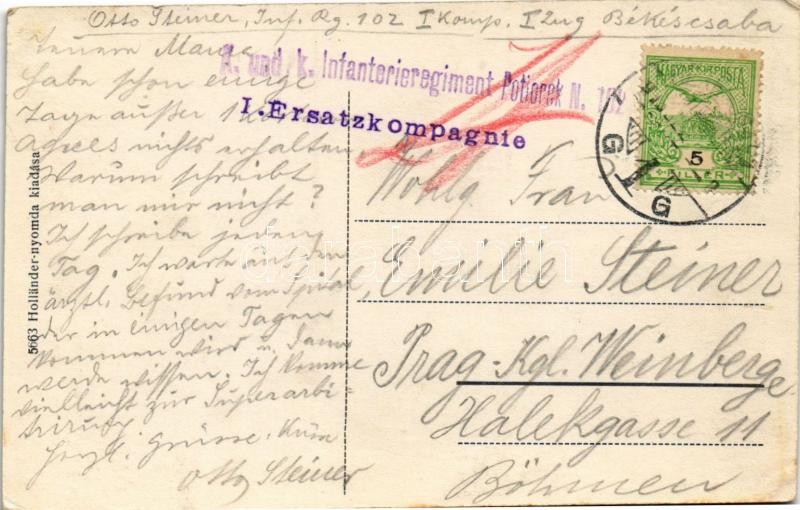 Otto Steiner, Inf. Rg. 102 I Komp. I Zug Békéscsaba
K. und k. Infanterieregiment Potiorek N. 102
I. Ersatzkompagnie
MAGYAR KIR. POSTA
5
FILLÉR
teuere Mama
habe schon einige
Tage außer
nichts erhalten
Warum schreibt
man mir nicht?
Ich schreibe jeden
Tag. Ich warte auf den
ärztl. Befund vom Spital,
der in einigen Tagen
kommen wird u. dann
werde wissen. Ich komme
vielleicht zur Superarbi-
trirung
Herzl. Grüsse. Küsse
Otto Steiner
Wohlg. Frau
Emilie Steiner
Prag-Kgl. Weinberge
Halekgasse 11
Böhmen
5663 Holländer-nyomda kiadása
darabanth